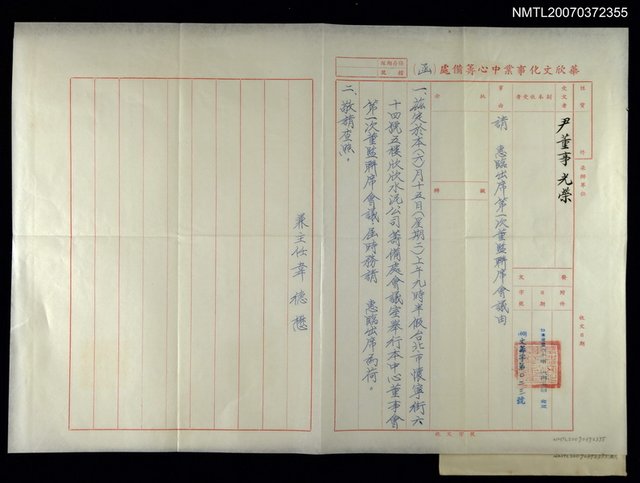 NMTL20070372355
華欣文化事業中心籌備處（函）
受文者
尹董事光榮
副本收受者
事由
請 惠臨出席第一次董監聯席會議由
附件
日期
字號
收文日期
一、茲定於本(六)月十五日(星期二)上午九時半假台北市懷寧街六
十四號五樓欣欣水泥公司籌備處會議室舉行本中心董事會
第一次董監聯席會議屆時務請 惠臨出席為荷。
二、敬請查照。
兼主任韋德懋
NMTL20070372355